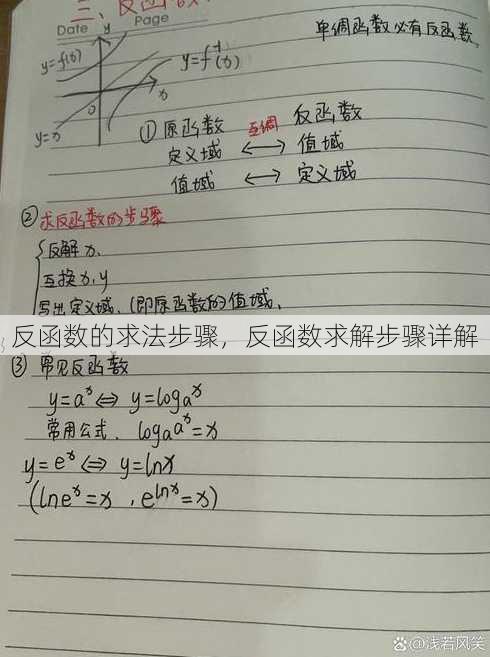 三、反函数
Date
Page
单调函数必有反函数.
y
y=f(x)
y=f⁻¹(x)
x
0
y=x
①原函数 互调 反函数
定义域 ⟷ 值域
值域 ⟷ 定义域
②求反函数的步骤
反解x.
互换x,y
写出定义域.(即原函数的值域.
反函数的求法步骤，反函数求解步骤详解
③ 常见反函数
y=aˣ⇔y=logₐx
常用公式. logₐaˣ=x
y=eˣ⇔y=lnx
(lneˣ=x , eˡⁿˣ=x)
@浅若风笑